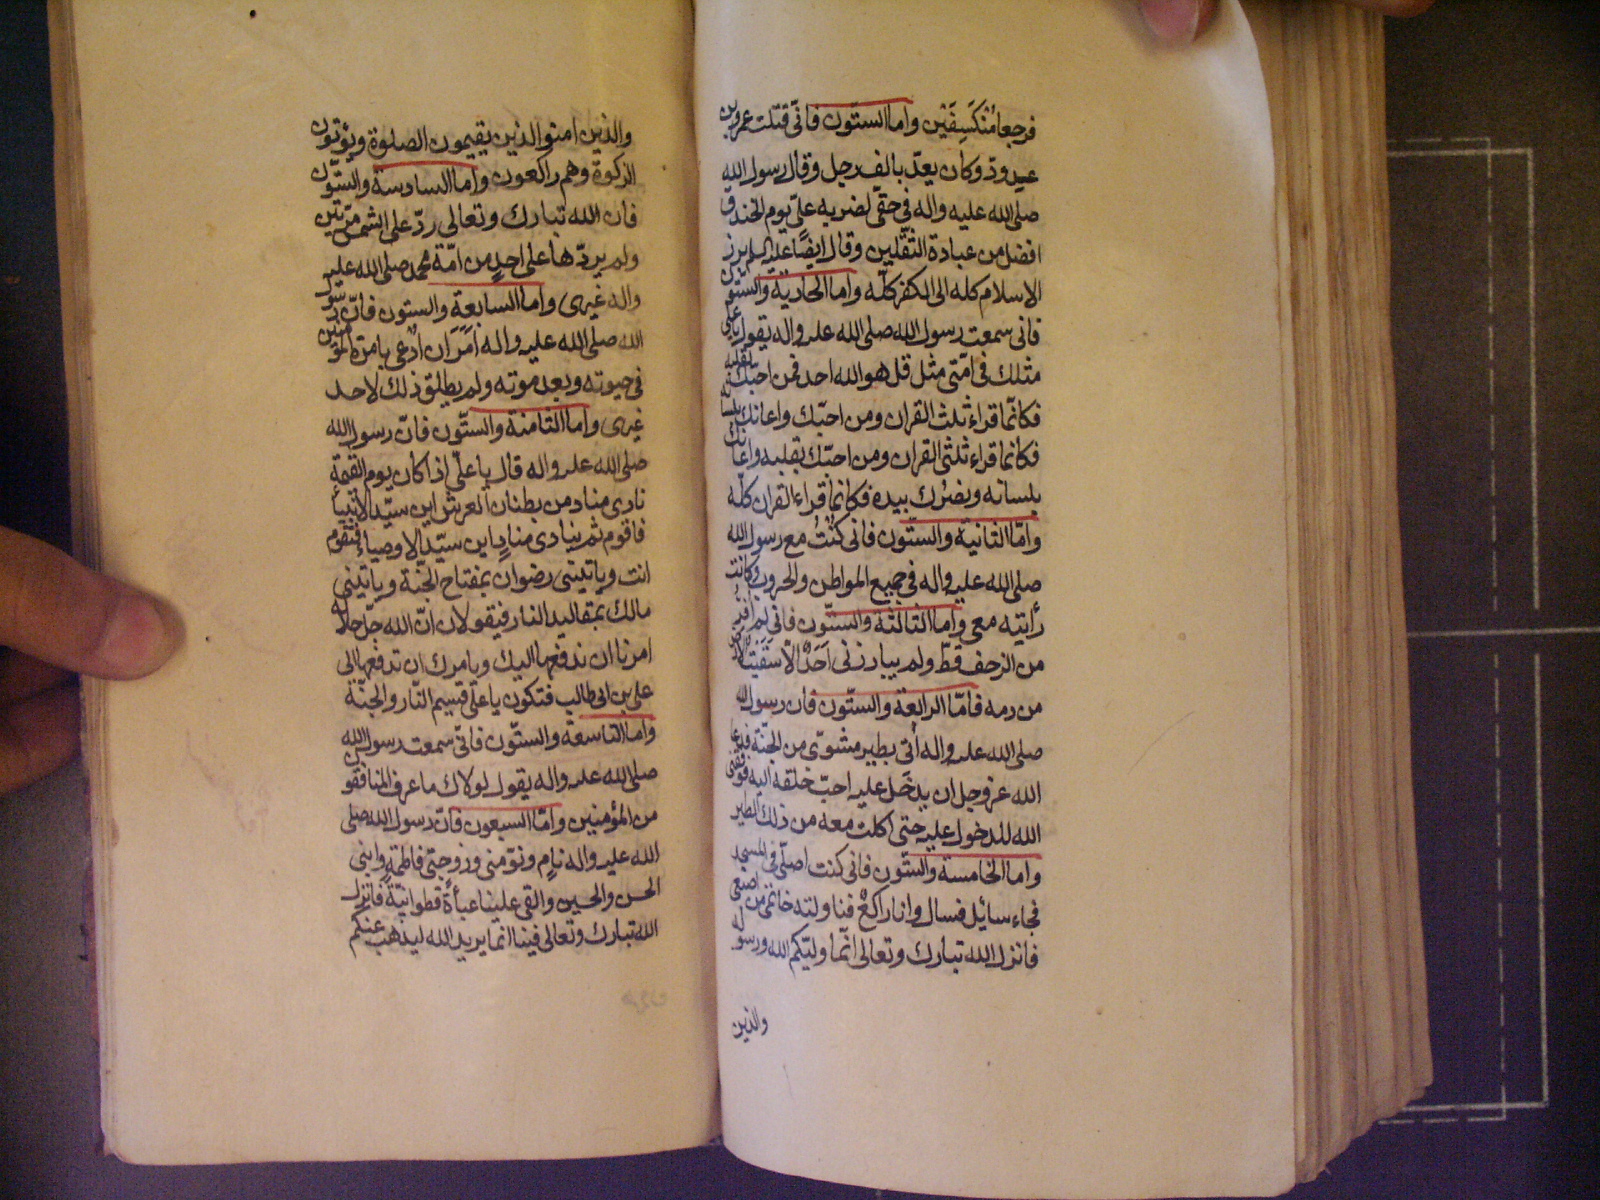 فرجعا منكسفين واما الستون فانّى قتلت عمرو بن
عبد ودّ وكان يعدّ بالف رجل وقال رسول الله
صلى الله عليه واله فى حقّى لضربة علىّ يوم الخندق
افضل من عبادة الثقلين وقال ايضًا عليه السلم برز
الاسلام كله الى الكفر كلّه واما الحادية والستون
فانى سمعت رسول الله صلى الله عليه واله يقول يا على
مثلك فى امّتى مثل قل هو الله احد فمن احبّك بقلبه
فكانّما قراء ثلث القران ومن احبّك واعانك بلسانه
فكانما قراء ثلثى القران ومن احبّك بقلبه واعانك
بلسانه ونصرك بيده فكانما قراء القران كلّه
وامّا الثانية والستّون فانى كُنْتُ مع رسول الله
صلى الله عليه واله فى جميع المواطن والحروب وكانت
رأيته معى واما الثالثة والستّون فانى لم افر
من الزحف قطّ ولم يبارزنى اَحَدٌ الّا سَقَيْتُ الارض
من دمه فامّا الرابعة والستّون فان رسول الله
صلى الله عليه واله أتى بطير مشوّى من الجنة فدعا
الله عز وجل ان يدخل عليه احبّ خلقه اليه فوفقنى
الله للدخول عليه حتى اكلت معه من ذلك الطير
واما الخامسة والستّون فانى كنت اصلّى فى المسجد
فجاء سائل فسال وانا راكعٌ فناولته خاتمى من اصبعى
فانزل الله تبارك وتعالى انّما وليّكم الله ورسوله
والذين
والذين امنوا الذين يقيمون الصلوة ويؤتون
الزكوة وهم راكعون واما السادسة والستّون
فان الله تبارك وتعالى ردّ على الشمس مرّتين
ولم يردّها على احدٍ من امّة محمد صلى الله عليه
واله غيرى واما السابعة والستون فانّ رسول
الله صلى الله عليه واله اَمَرَ ان اُدْعى بامرة المؤمنين
فى حيوته وبعد موته ولم يطلق ذلك لاحد
غيرى واما الثامنة والستّون فانّ رسول الله
صلى الله عليه واله قال يا علىّ اذا كان يوم القيمة
نادى مناد من بطنان العرش اين سيّد الانبياء
فاقوم ثم ينادى منادٍ اين سيّد الاوصياء فتقوم
انت وياتينى رضوان بمفتاح الجنّة وياتينى
مالك بمقاليد النار فيقولان انّ الله جلّ جلاله
امرنا ان ندفعها اليك ويامرك ان تدفعها الى
على بن ابى طالب فتكون يا علىّ قسيم النّار والجنّة
واما التاسعة والستّون فانّى سمعت رسول الله
صلى الله عليه واله يقول لولاك ما عرف المنافقون
من المؤمنين وامّا السبعون فانّ رسول الله صلى
الله عليه واله نام ونوّمنى وزوجتى فاطمة وابنى
الحسن والحسين والقى علينا عباءة قطوانيّة فانزل
الله تبارك وتعالى فينا انما يريد الله ليذهب عنكم